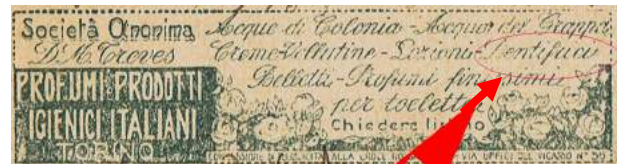 Società Anonima
D. M. Treves
PROFUMI PRODOTTI
IGIENICI ITALIANI
TORINO
Acque di Colonia - Acqua dei
Creme Vellutine - Lozioni - Dentifrici
Belletti - Profumi finissimi
per toeletta
Chiedere listino
ALLA CROCE